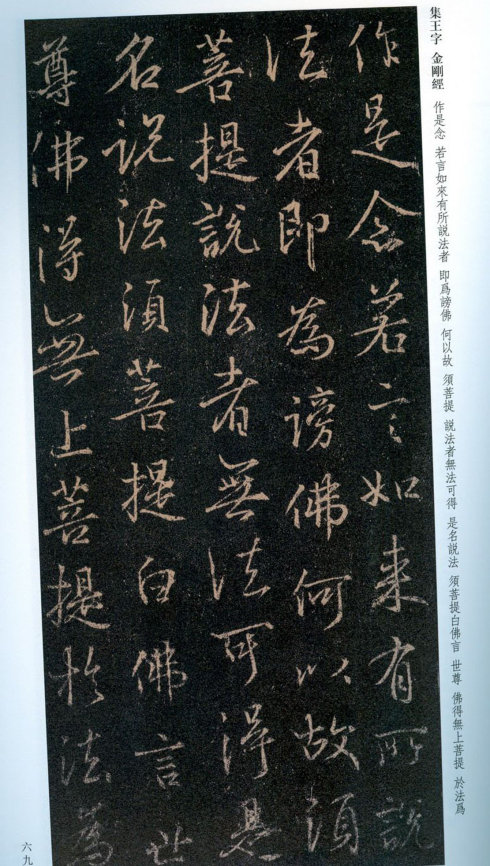 集王字 金剛經 作是念 若言如來有所説法者 即爲謗佛 何以故 須菩提 説法者無法可得 是名説法 須菩提白佛言 世尊 佛得無上菩提 於法爲
作是念若言如来有所說
法者即為謗佛何以故須
菩提說法者無法可得是
名說法須菩提白佛言世
尊佛得無上菩提於法為
六九